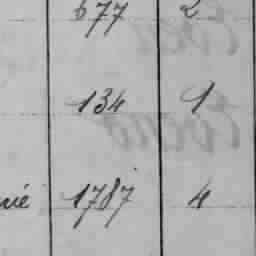 677 2
134 1
vié 1787 4